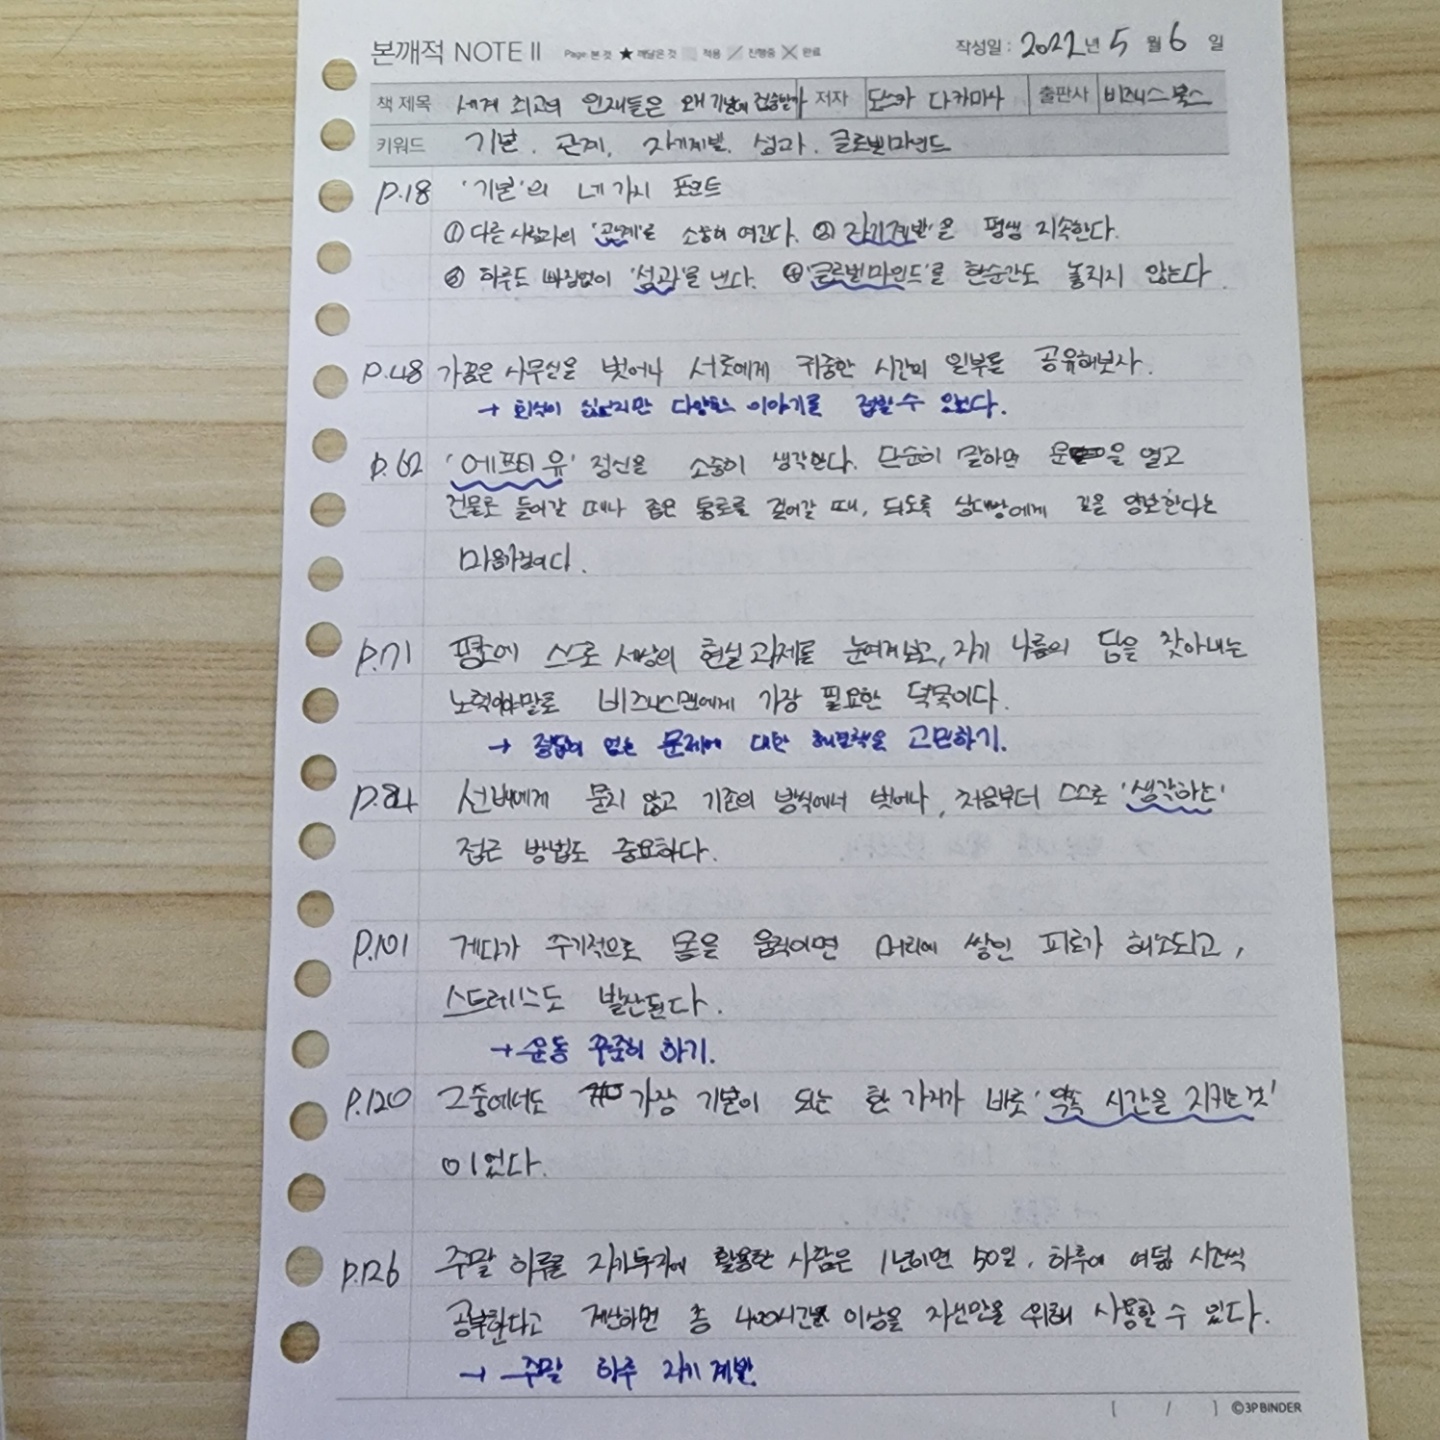 본깨적 NOTE II Page 본 것 ★ 깨달은 것 적용 진행중 완료 작성일 : 2022년 5월 6일
책 제목 세계 최고의 인재들은 왜 기본에 집중할까 저자 도쓰카 다카마사 출판사 비즈니스북스
키워드 기본. 관계. 자기계발. 성과. 글로벌마인드
p.18 '기본'의 네 가지 포인트
① 다른 사람과의 '관계'를 소중히 여긴다. ② '자기계발'을 평생 지속한다.
③ 하루도 빠짐없이 '성과'를 낸다. ④ '글로벌마인드'를 한순간도 놓치지 않는다.
p.48 가끔은 사무실을 벗어나 서로에게 귀중한 시간의 일부를 공유해보자.
→ 회식이 싫지만 다양한 이야기를 접할 수 있다.
p.62 '에프터 유' 정신을 소중히 생각한다. 단순히 말하면 문을 열고
건물로 들어갈 때나 좁은 통로를 걸어갈 때, 되도록 상대방에게 길을 양보한다는
마음가짐이다.
p.71 평소에 스스로 세상의 현실 과제를 눈여겨보고, 자기 나름의 답을 찾아내는
노력이야말로 비즈니스맨에게 가장 필요한 덕목이다.
→ 정답이 없는 문제에 대한 해결책을 고민하기.
p.84 선배에게 묻지 않고 기존의 방식에서 벗어나, 처음부터 스스로 '생각하는'
접근 방법도 중요하다.
p.101 게다가 주기적으로 몸을 움직이면 머리에 쌓인 피로가 해소되고,
스트레스도 발산된다.
→ 운동 꾸준히 하기.
p.120 그중에서도 가장 기본이 되는 한 가지가 바로 '약속 시간을 지키는 것'
이었다.
p.126 주말 하루를 자기투자에 활용한 사람은 1년이면 50일, 하루에 여덟 시간씩
공부한다고 계산하면 총 400시간 이상을 자신만을 위해 사용할 수 있다.
→ 주말 하루 자기계발.
( / ) ©3P BINDER